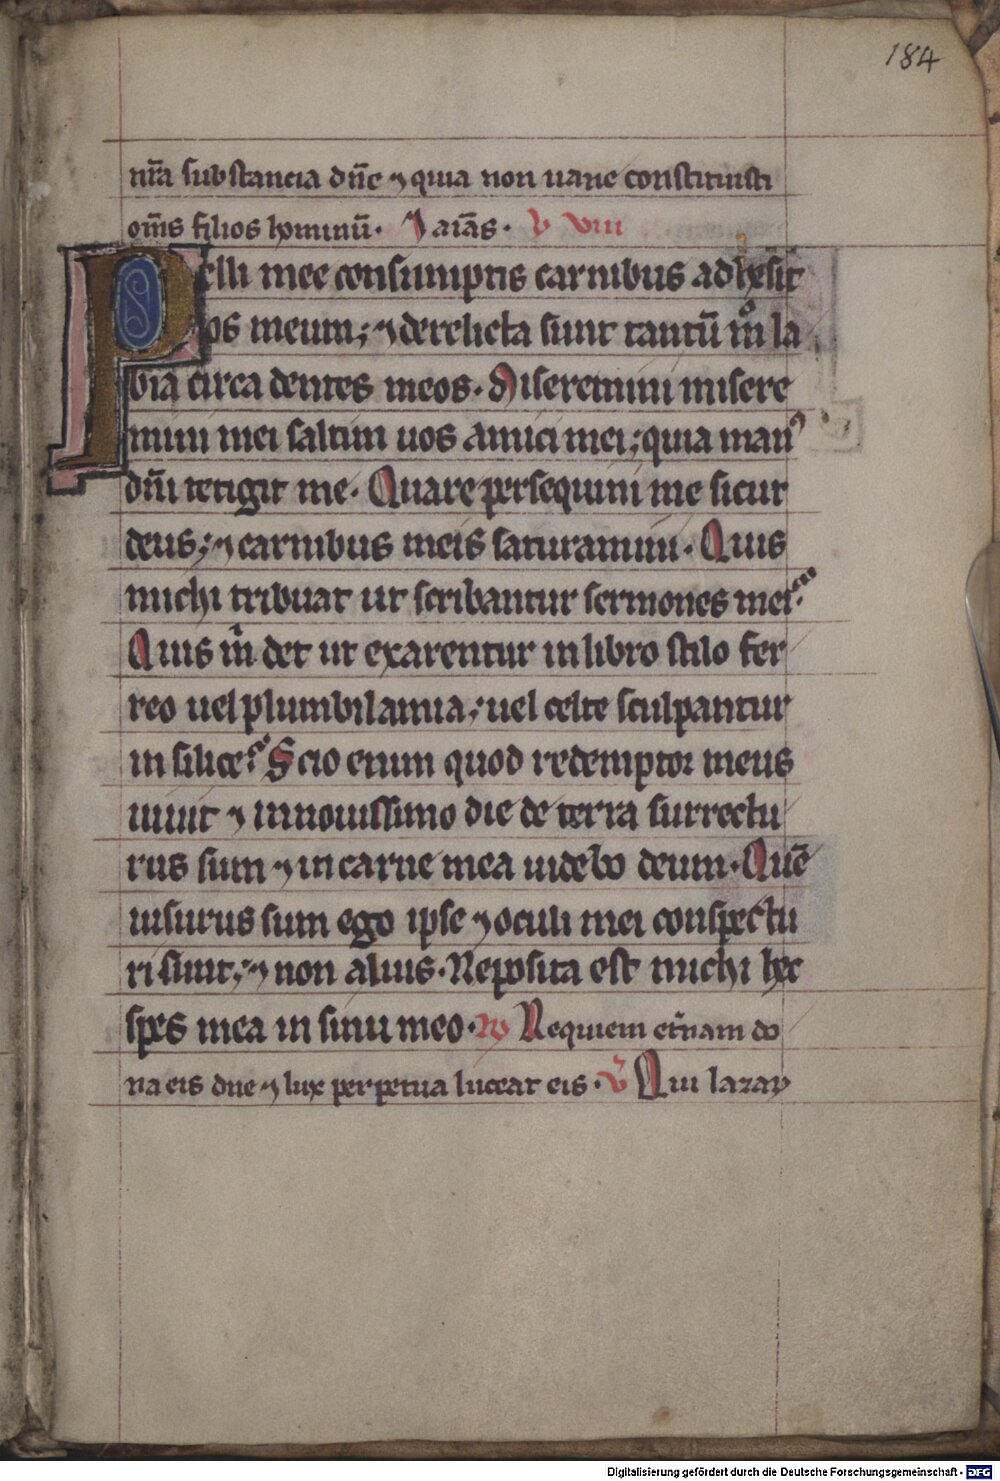 184
nr̄a substancia dn̄e ⁊ quia non uane constituisti
om̄s filios hominū. Iaiās. v viii
Pelli mee consumptis carnibus adhesit
os meum; ⁊ derelicta sunt tantū m̊ la
bia circa dentes meos. Miseremini misere
mini mei saltim uos amici mei; quia manꝰ
dn̄i tetigit me. Quare persequimi me sicut
deus; ⁊ carnibus meis saturamini. Quis
michi tribuat ut scribantur sermones mei?
Quis m̄ det ut exarentur in libro stilo fer
reo uel plumbi lamia; uel celte sculpantur
in silice? Scio enim quod redemptor meus
uiuit ⁊ in nouissimo die de terra surrectu
rus sum ⁊ in carne mea uidebo deum. Quē
uisurus sum ego ipse ⁊ oculi mei conspectu
ri sunt; ⁊ non alius. Reposita est michi hec
spes mea in sinu meo. ꝶ Requiem et̄nam do
na eis dn̄e ⁊ lux perpetua luceat eis. ℣ Qui lazaꝝ
Digitalisierung gefördert durch die Deutsche Forschungsgemeinschaft - DFG